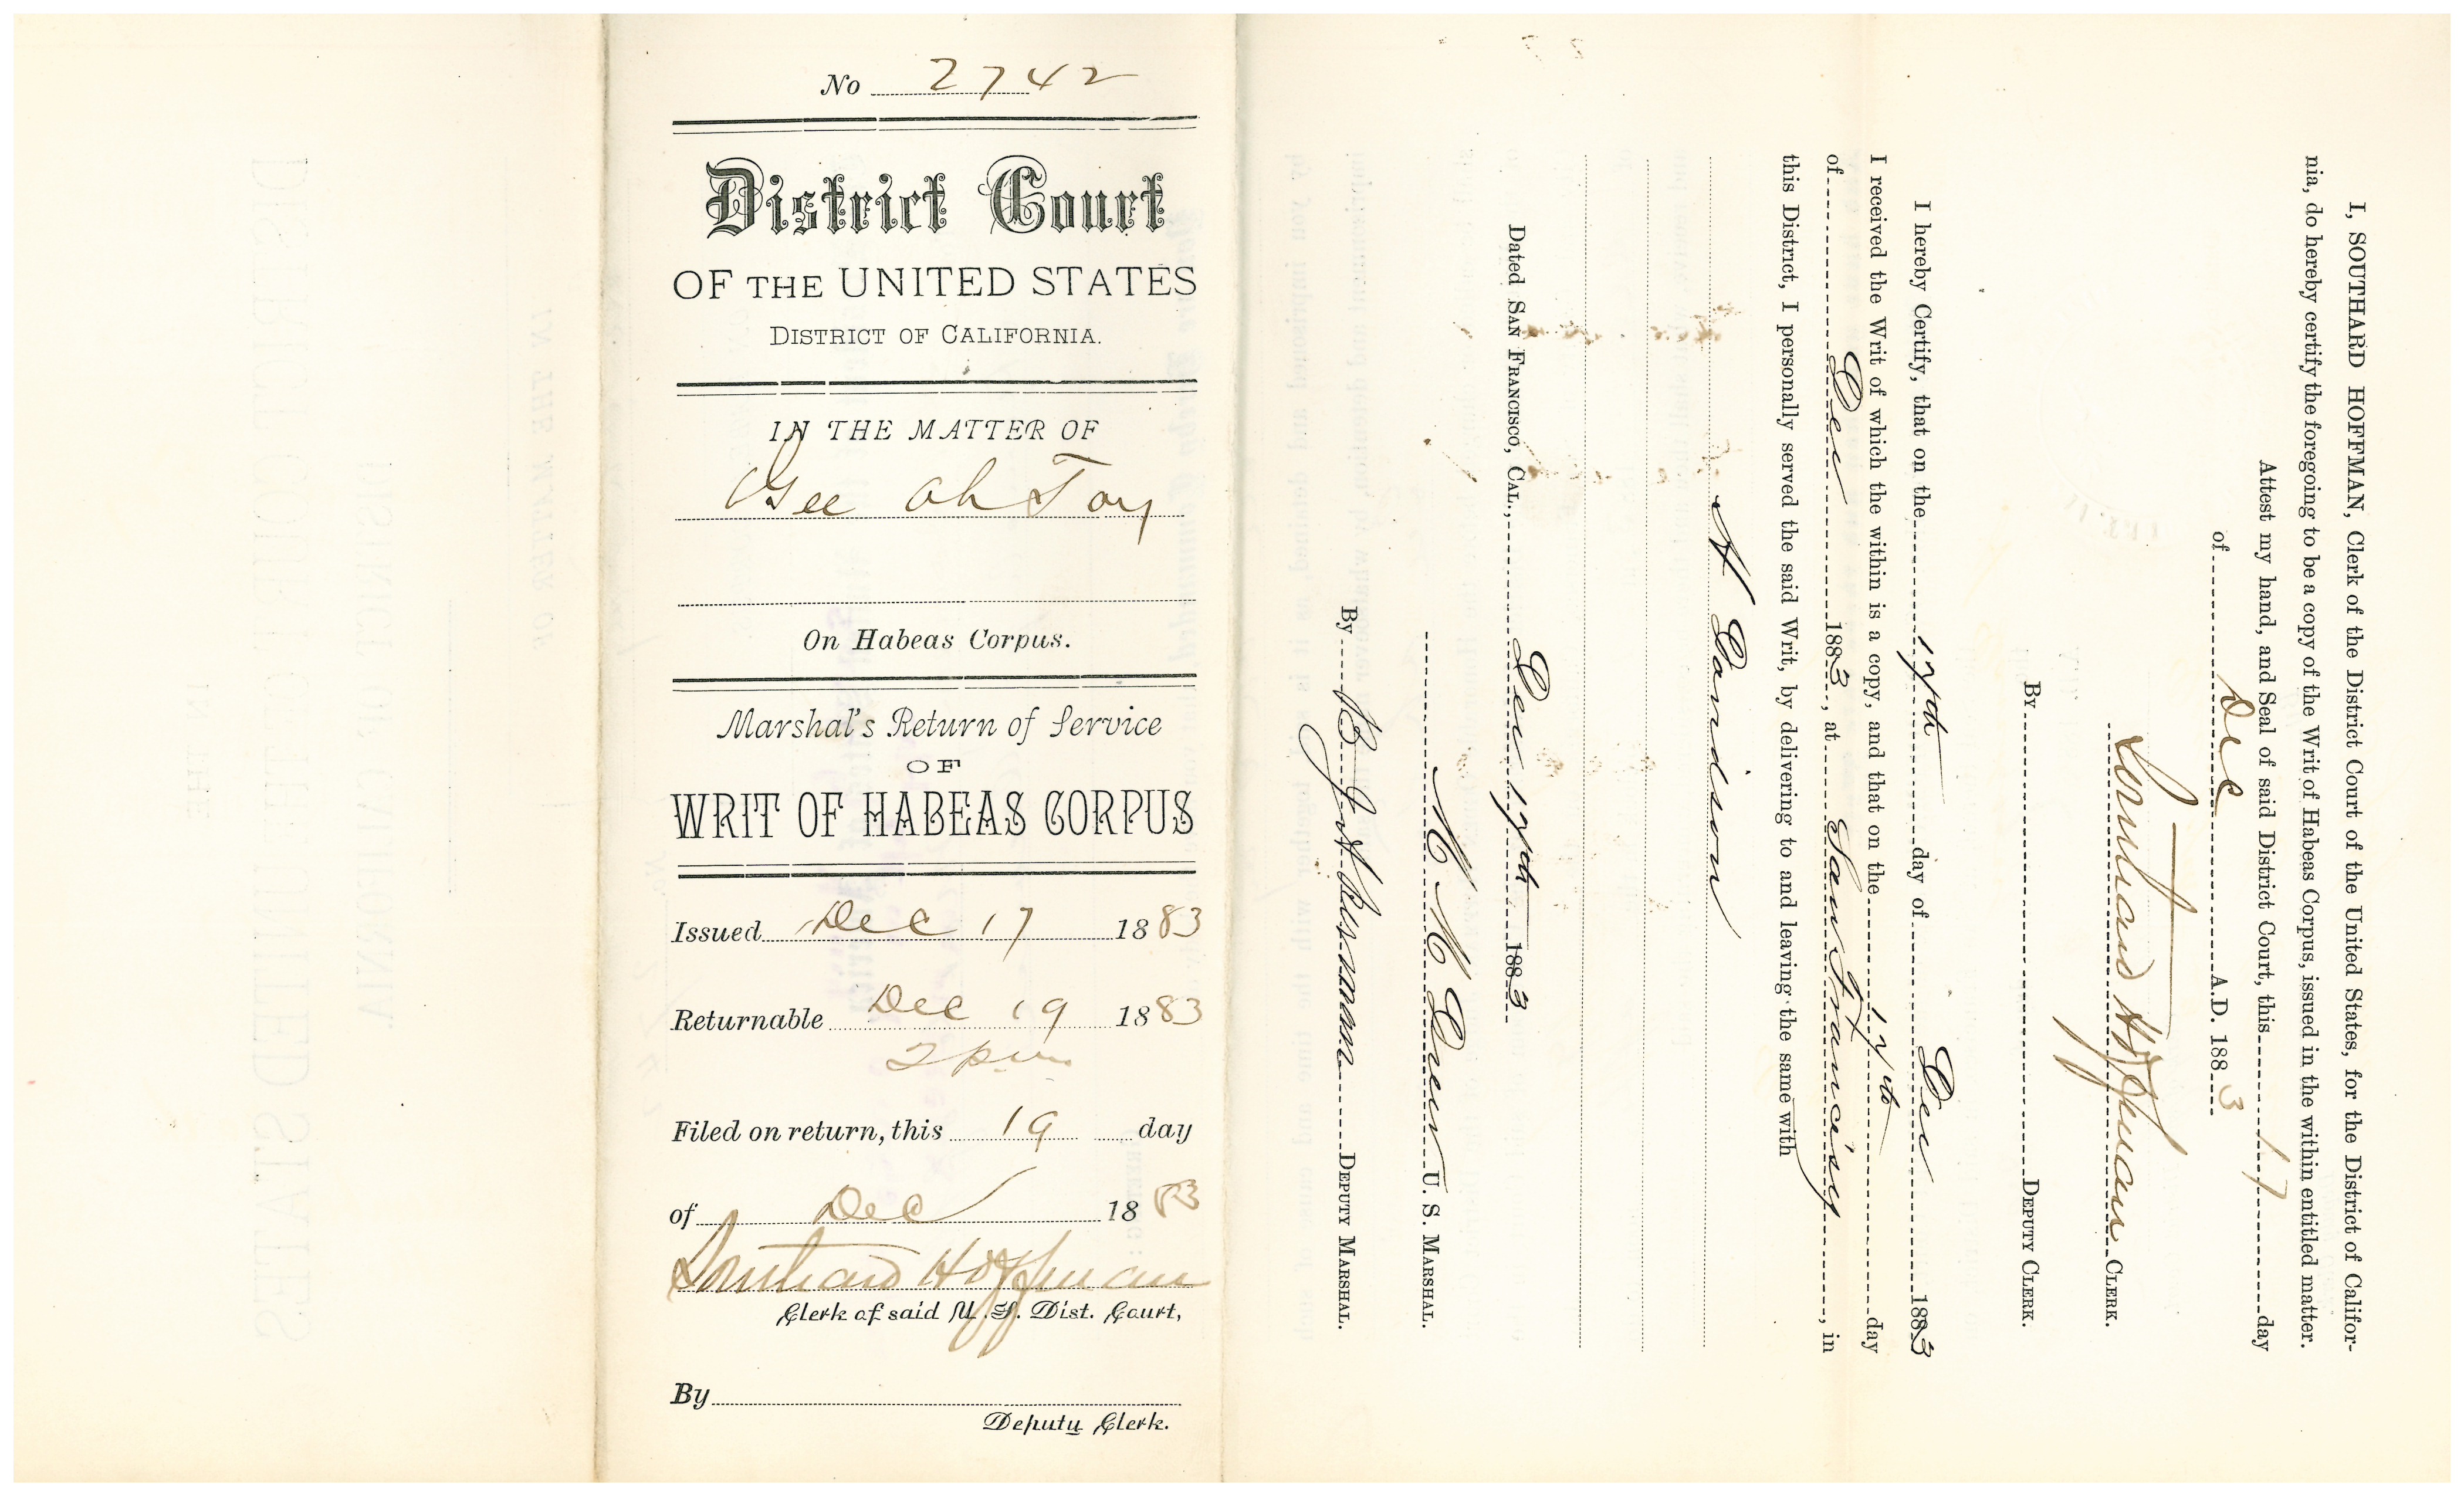 No 2742
District Court
OF THE UNITED STATES
DISTRICT OF CALIFORNIA.
IN THE MATTER OF
Gee Ah Toy
On Habeas Corpus.
Marshal's Return of Service
OF
WRIT OF HABEAS CORPUS
Issued Dec 17 1883
Returnable Dec 19 1883
2 pm
Filed on return, this 19 day
of Dec 1883
Southard Hoffman
Clerk of said U. S. Dist. Court,
By
Deputy Clerk.
I, SOUTHARD HOFFMAN, Clerk of the District Court of the United States, for the District of Califor-
nia, do hereby certify the foregoing to be a copy of the Writ of Habeas Corpus, issued in the within entitled matter.
Attest my hand, and Seal of said District Court, this 17 day
of Dec A.D. 1883
Southard Hoffman CLERK.
By DEPUTY CLERK.
I hereby Certify, that on the 17th day of Dec 1883
I received the Writ of which the within is a copy, and that on the 17th day
of Dec 1883, at San Francisco, in
this District, I personally served the said Writ, by delivering to and leaving the same with
Dated SAN FRANCISCO, CAL., Dec 17th 1883
M M Drew U. S. MARSHAL.
By DEPUTY MARSHAL.
DISTRICT COURT OF THE UNITED STATES
DISTRICT OF CALIFORNIA
IN THE MATTER OF
IN THE